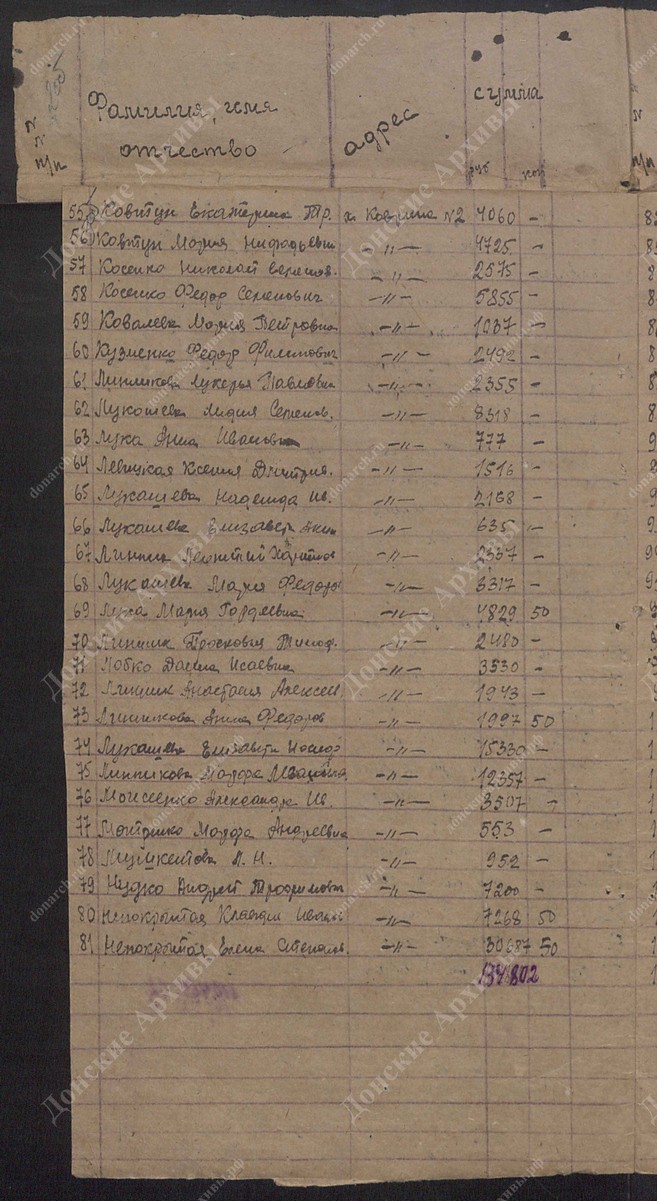 № п/п Фамилия, имя отчество адрес сумма руб коп
55 Ковтун Екатерина Тр. х. Коврина №2 4060 -
56 Ковтун Мария -"- 4725 -
57 Косенко Николай -"- 2575 -
58 Косенко Федор Семенович -"- 5855 -
59 Ковалева Мария Петровна -"- 1037 -
60 Кузменко Федор Филипович -"- 2492 -
61 Линникова Лукерья Павловна -"- 2355 -
62 Лукашева Лидия Семенов. -"- 8318 -
63 Лука Анна Ивановна -"- 777 -
64 Левицкая Ксения Дмитрив. -"- 1516 -
65 Лукашева Надежда Ив. -"- 2168 -
66 Лукашева Елизавета Аким -"- 635 -
67 Линник -"- 2337 -
68 Лукашева Мария Федоро -"- 3317 -
69 Лука Мария Гордеевна -"- 4829 50
70 Линник Просковия Тимоф. -"- 2480 -
71 Лобко Дарина Исаевна -"- 3530 -
72 Линник Анастасия Алексеев. -"- 1943 -
73 Линникова Анна Федоров -"- 1997 50
74 Лукашева Елизавета Иосиф -"- 15330 -
75 Линникова Марфа Ивановна -"- 12357 -
76 Моисеенко Александра Ив. -"- 3507 -
77 Марфа Андреевна -"- 553 -
78 Л. Н. -"- 952 -
79 Нудко Андрей Трофимович -"- 7200 -
80 Непокрытая Клавдия Иванов -"- 7268 50
81 Непокрытая Елена Степанов. -"- 30687 50
134802
Донские Архивы
donarch.ru